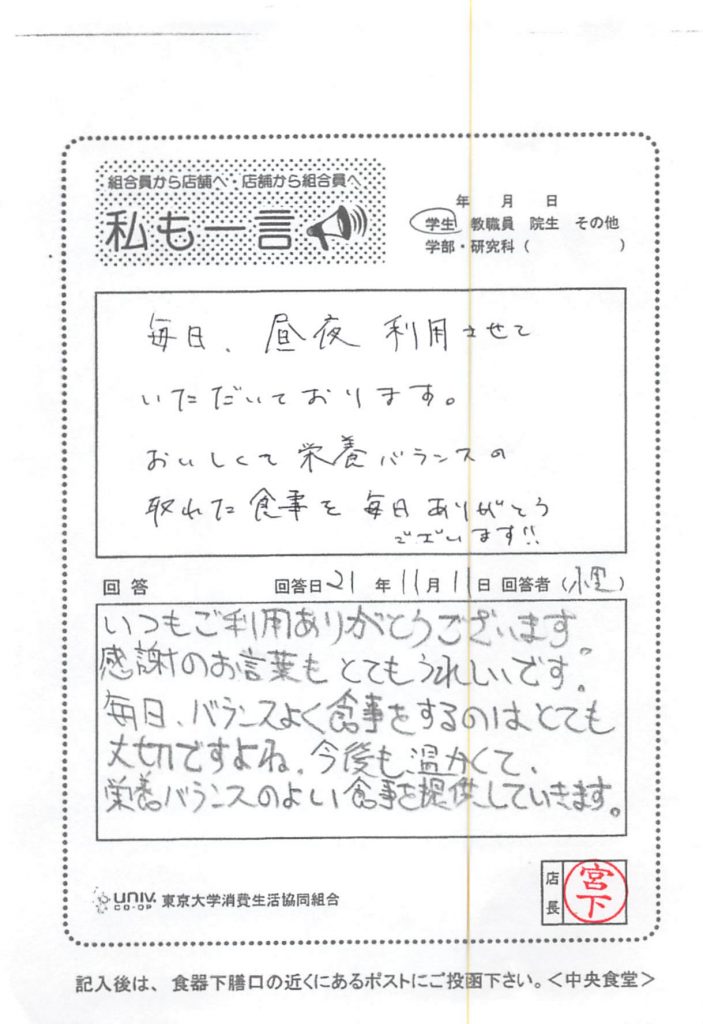 組合員から店舗へ・店舗から組合員へ
私も一言
年 月 日
学生 教職員 院生 その他
学部・研究科（ ）
毎日、昼夜 利用させて
いただいております。
おいしくて栄養バランスの
取れた食事を毎日ありがとう
ございます!!
回答 回答日 21 年 11月 11日 回答者（ ）
いつもご利用ありがとうございます。
感謝のお言葉もとてもうれしいです。
毎日、バランスよく食事をするのはとても
大切ですよね。今後も温かくて、
栄養バランスのよい食事を提供していきます。
UNIV. CO-OP 東京大学消費生活協同組合
店長 宮下
記入後は、食器下膳口の近くにあるポストにご投函下さい。＜中央食堂＞